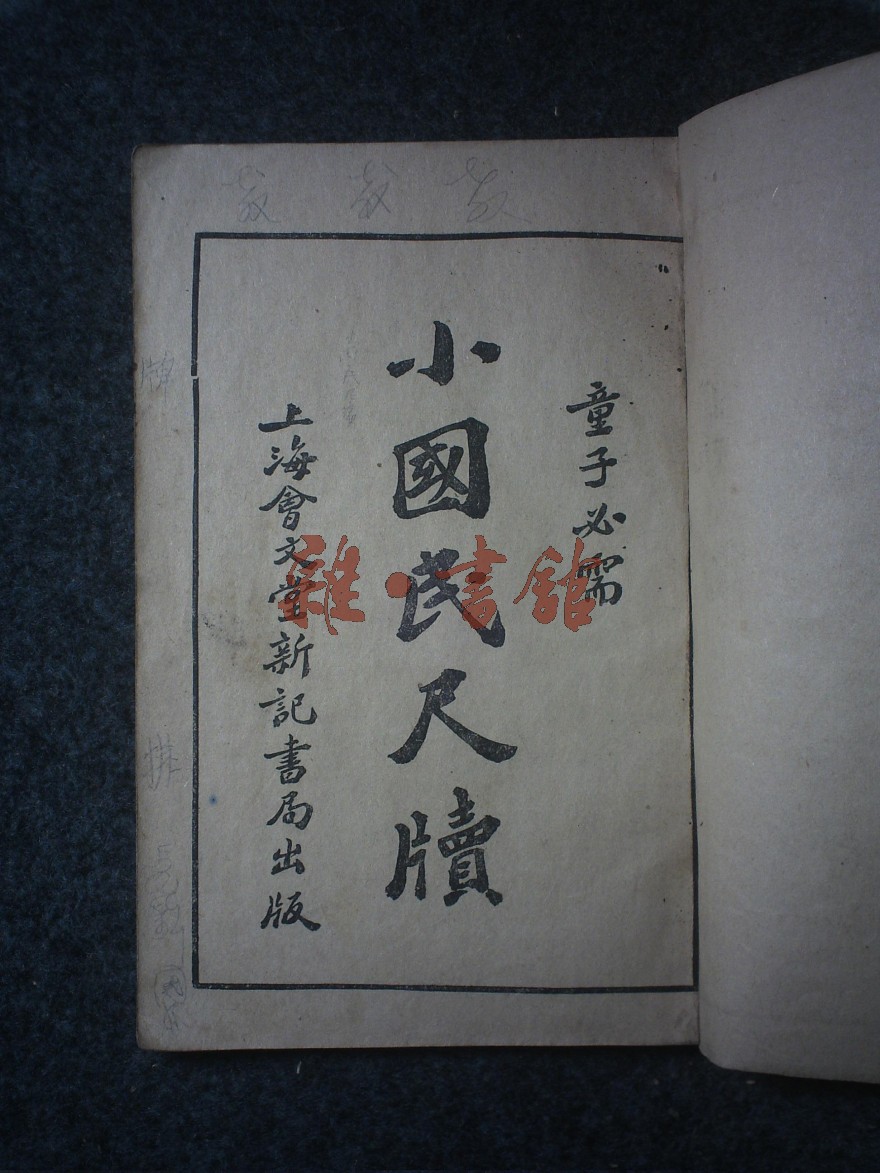 童子必需
小國民尺牘
上海會文堂新記書局出版
雜·書館
牌